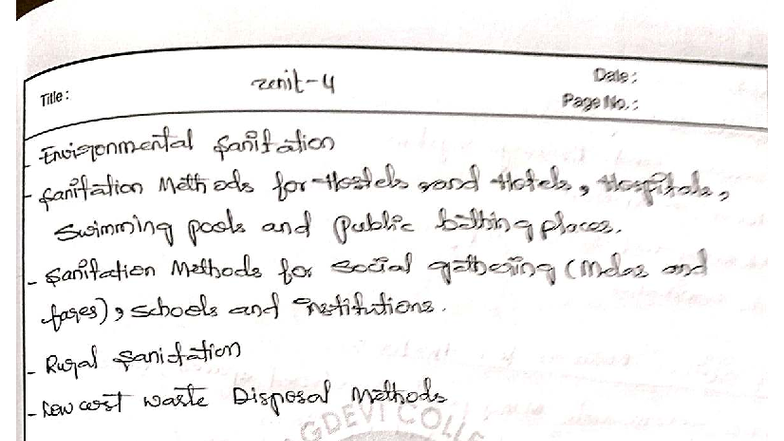 Title:
unit-4
Date:
Page No.:
- Environmental Sanitation
- Sanitation Methods for Hostels and Hotels, Hospitals,
Swimming pools and Public bathing places.
- Sanitation Methods for Social gathering (Melas and
fares), schools and institutions.
- Rural Sanitation
- Low cost waste Disposal Methods
GDEVI COLL